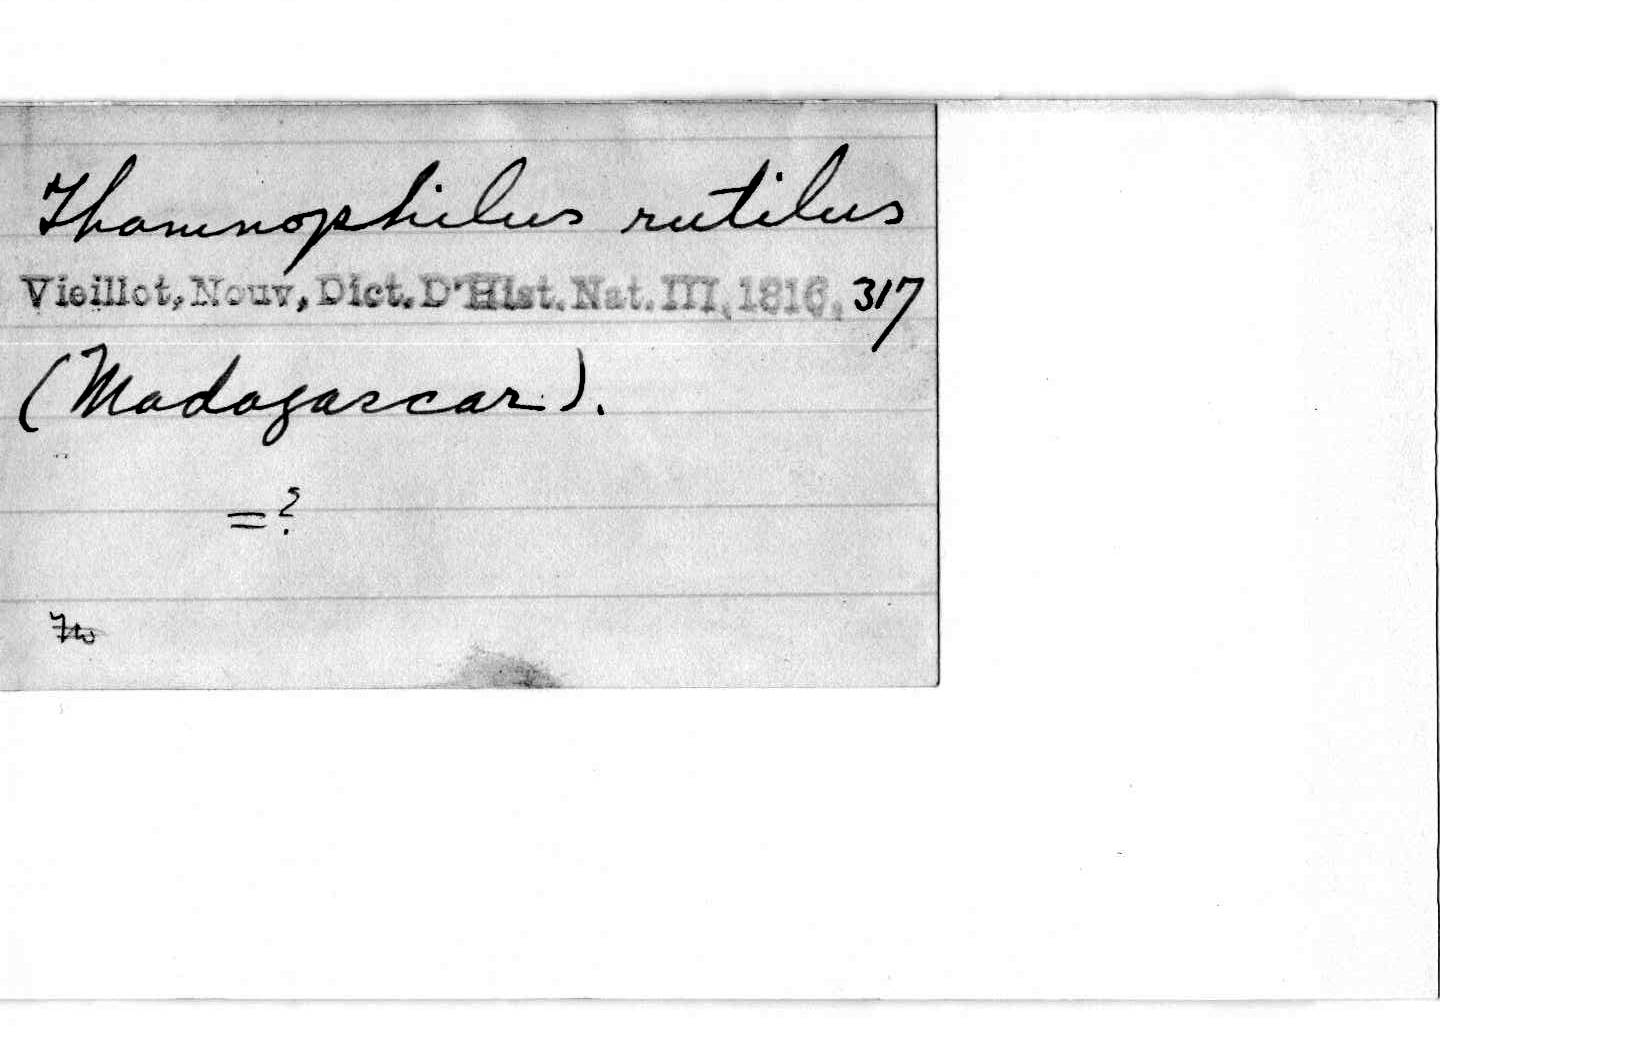 Thamnophilus rutilus
Vieillot, Nouv, Dict. D'Hist. Nat. III, 1816, 317
(Madagascar).
= ?